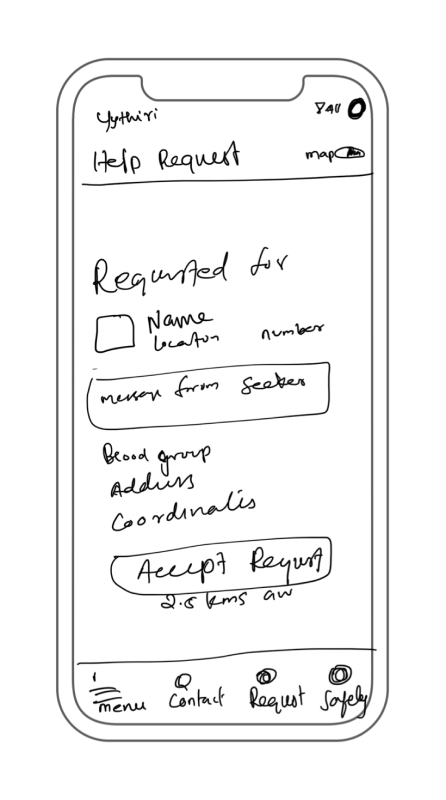 Yythiri
840
Help Request
map
Requested for
Name
Location
number
message from Seeker
Blood group
Address
Coordinates
Accept Request
2.8 kms aw
menu
Contact
Request
Safely